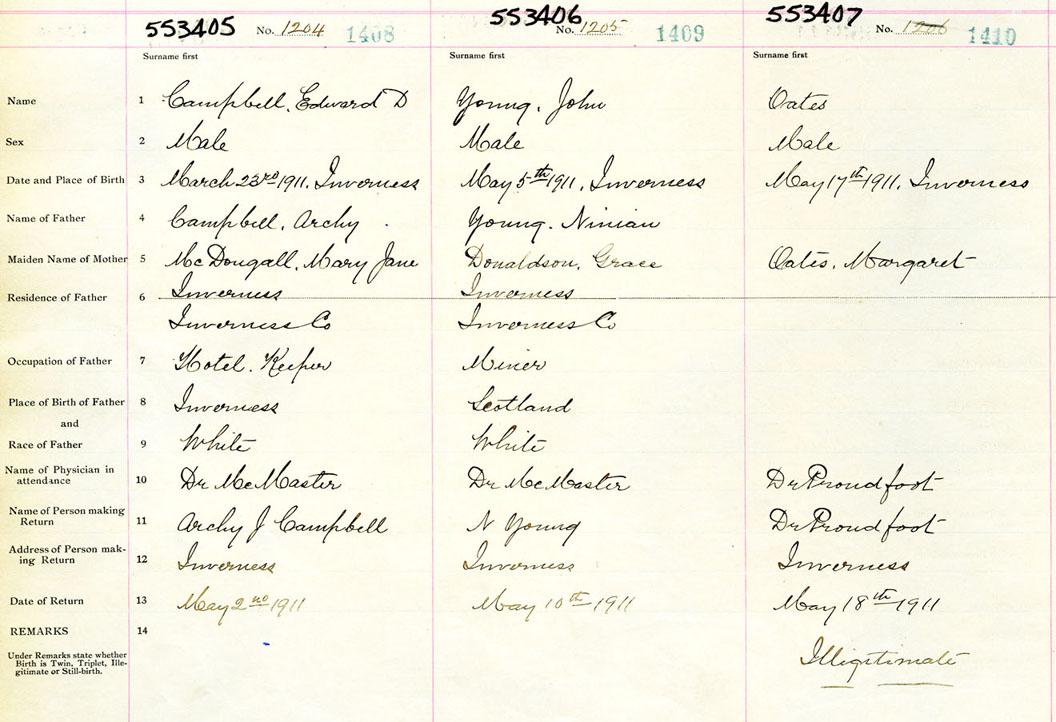 553405 No. 1204 1408 553406 No. 1205 1409 553407 No. 1206 1410
Surname first Surname first Surname first
Name 1 Campbell, Edward D Young, John Oates
Sex 2 Male Male Male
Date and Place of Birth 3 March 23rd 1911, Inverness May 5th 1911, Inverness May 17th 1911, Inverness
Name of Father 4 Campbell, Archy Young, Ninian
Maiden Name of Mother 5 McDougall, Mary Jane Donaldson, Grace Oates, Margaret
Residence of Father 6 Inverness Inverness
Inverness Co Inverness Co
Occupation of Father 7 Hotel Keeper Miner
Place of Birth of Father 8 Inverness Scotland
and
Race of Father 9 White White
Name of Physician in
attendance 10 Dr McMaster Dr McMaster Dr Proudfoot
Name of Person making
Return 11 Archy J Campbell N Young Dr Proudfoot
Address of Person mak-
ing Return 12 Inverness Inverness Inverness
Date of Return 13 May 2nd 1911 May 10th 1911 May 18th 1911
REMARKS 14
Under Remarks state whether
Birth is Twin, Triplet, Ille-
gitimate or Still-birth.
Illigitimate